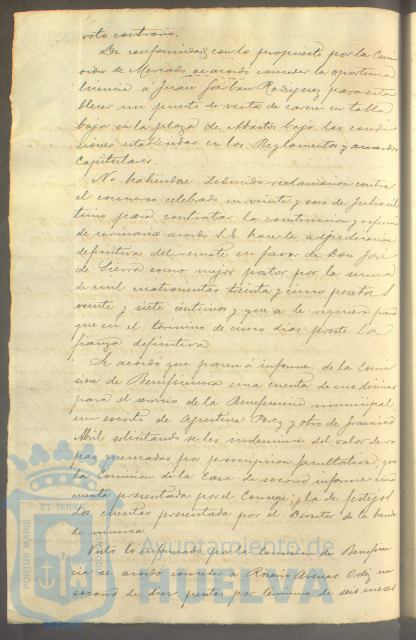 voto contrario.
De conformidad con lo propuesto por la Comi
sion de Mercado se acordó conceder la oportuna
licencia a Juan Rodriguez para esta
blecer un puesto de venta de carne en tabla
baja en la plaza de Abastos bajo las condi
ciones establecidas en los Reglamentos y acuerdos
Capitulares.
No habiendose deducido reclamacion contra
el concurso celebrado en veinte y seis de Julio úl
timo para contratar la construccion y reforma
de urinarios acordó S.E. hacer la adjudicacion
definitiva del remate en favor de Don José
de Sierra como mejor postor por la suma
de mil cuatrocientas treinta y cinco pesetas
veinte y siete centimos y que se le requiera para
que en el término de cinco dias preste la
fianza definitiva.
Se acordó que pasen á informe: de la Comi
sion de Beneficencia una cuenta de medicinas
para el servicio de la Beneficencia municipal
un escrito de Agustina Perez y otro de Francisco
Abril solicitando se les indemnice del valor de ro
pas quemadas por prescripcion facultativa; que
la Comision de la Casa de socorro informe una
cuenta presentada por el Conserje; y la de festejos
dos cuentas presentadas por el Director de la banda
de musica.
Visto lo informado por la Comision de Beneficen
cia se acordó conceder a Rosario Arenas Ortiz un
socorro de diez pesetas por termino de seis meses
PORTUS MARIS ET TERRAE
Ayuntamiento de
HUELVA